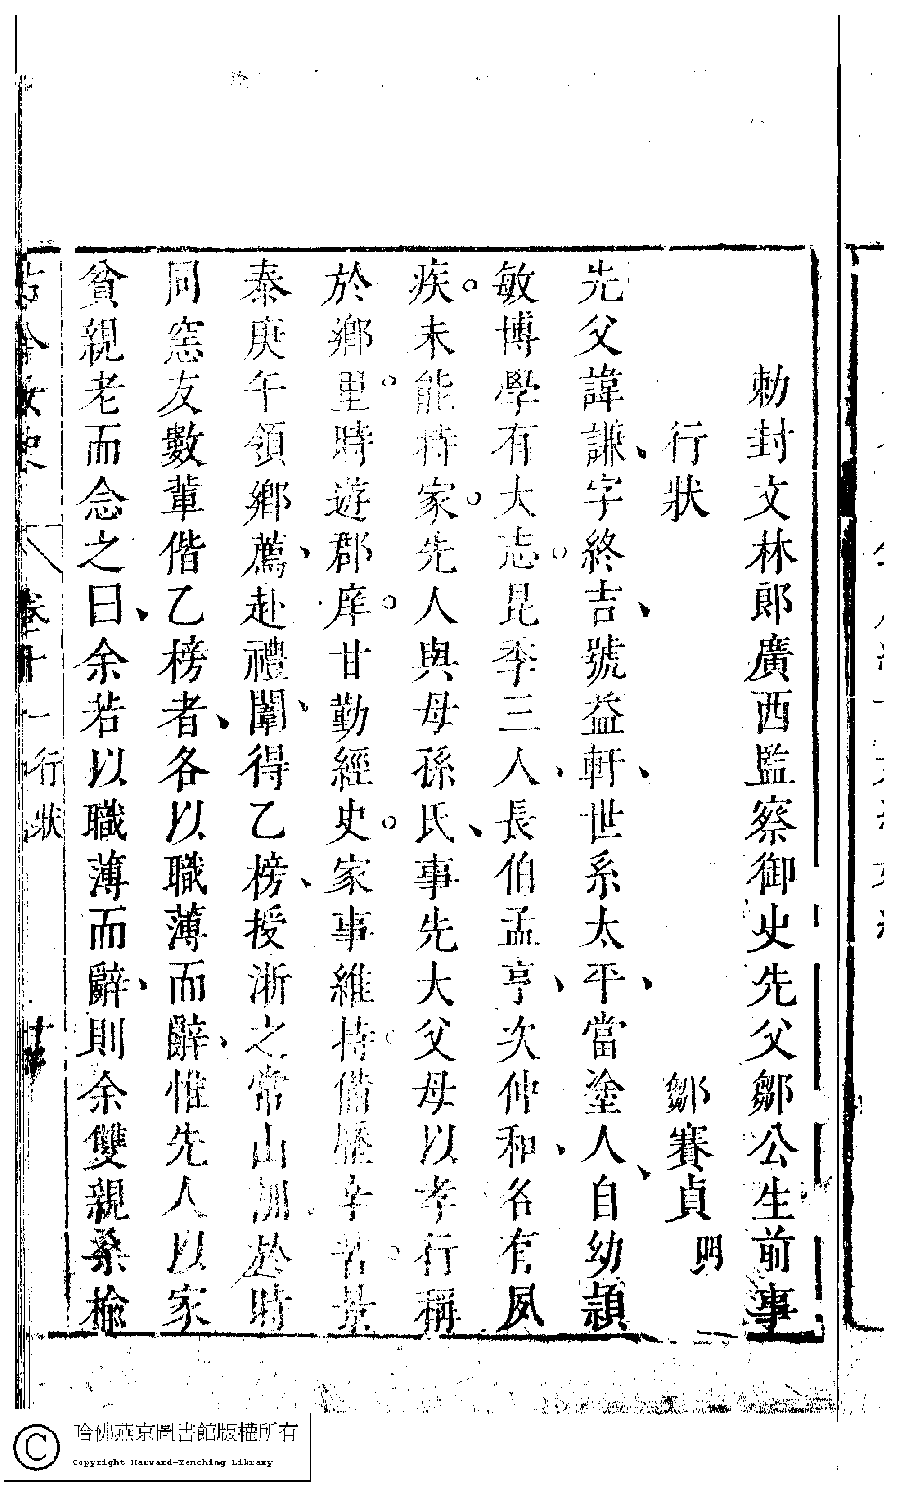 勅封文林郎廣西監察御史先父鄒公生前事
行狀　鄒賽貞明
先父諱謙、字終吉、號益軒、世系太平、當塗人、自幼頴
敏博學有大志。昆季三人、長伯孟亨、次仲和、名有夙
疾。未能持家。先人與母孫氏、事先大父母以孝行稱
於鄉里。時遊郡庠。甘勤經史。家事維持。備歷辛苦。景
泰庚午領鄉薦、赴禮闈、得乙榜、授浙之常山訓、於時
同窓友數輩偕乙榜者、各以職薄而辭、惟先人以家
貧親老而念之曰、余若以職薄而辭、則余雙親桑榆
古今女史
卷十一
行狀
哈佛燕京圖書館版權所有
Copyright Harvard-Yenching Library